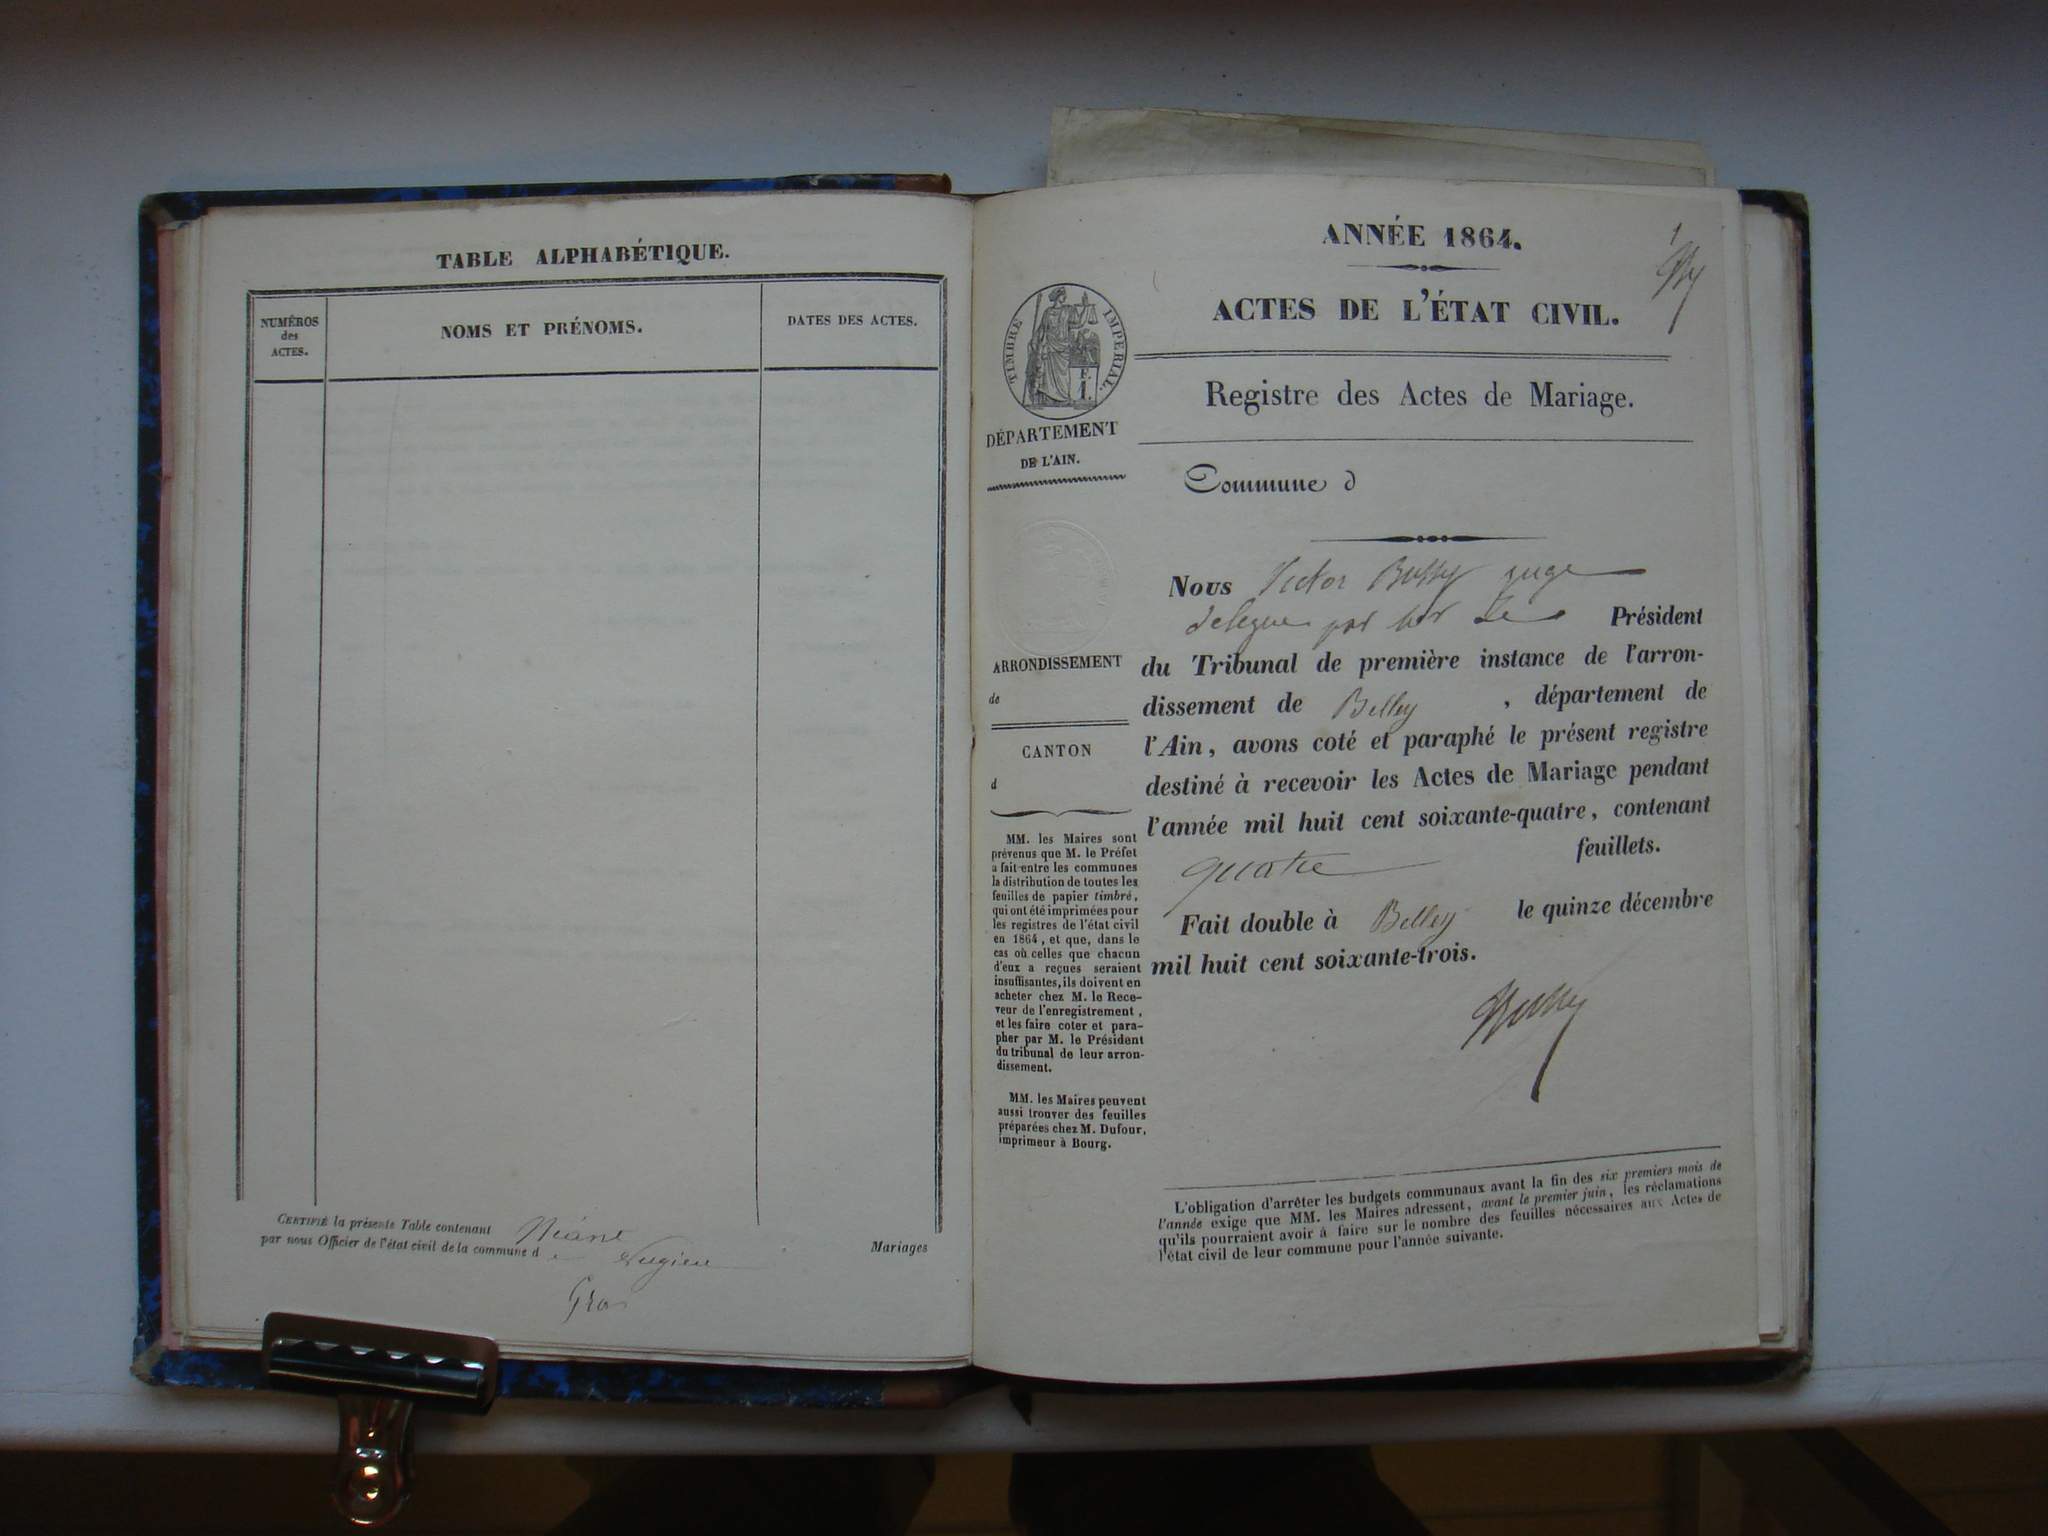 TABLE ALPHABÉTIQUE.
NUMÉROS
des
ACTES.
NOMS ET PRÉNOMS.
DATES DES ACTES.
CERTIFIÉ la présente Table contenant Néant Mariages
par nous Officier de l'état civil de la commune d
Gros
1
ANNÉE 1864.
ACTES DE L'ÉTAT CIVIL.
TIMBRE IMPÉRIAL.
F.
1.
DÉPARTEMENT
DE L'AIN.
Registre des Actes de Mariage.
Commune d
ARRONDISSEMENT
de
CANTON
d
MM. les Maires sont
prévenus que M. le Préfet
a fait entre les communes
la distribution de toutes les
feuilles de papier timbré,
qui ont été imprimées pour
les registres de l'état civil
en 1864, et que, dans le
cas où celles que chacun
d'eux a reçues seraient
insuffisantes, ils doivent en
acheter chez M. le Rece-
veur de l'enregistrement,
et les faire coter et para-
pher par M. le Président
du tribunal de leur arron-
dissement.
MM. les Maires peuvent
aussi trouver des feuilles
préparées chez M. Dufour,
imprimeur à Bourg.
Nous Victor Bussy juge
delegue par Mr Le Président
du Tribunal de première instance de l'arron-
dissement de Belley , département de
l'Ain, avons coté et paraphé le présent registre
destiné à recevoir les Actes de Mariage pendant
l'année mil huit cent soixante-quatre, contenant
quatre feuillets.
Fait double à Belley le quinze décembre
mil huit cent soixante-trois.
Bussy
L'obligation d'arrêter les budgets communaux avant la fin des six premiers mois de
l'année exige que MM. les Maires adressent, avant le premier juin, les réclamations
qu'ils pourraient avoir à faire sur le nombre des feuilles nécessaires aux Actes de
l'état civil de leur commune pour l'année suivante.